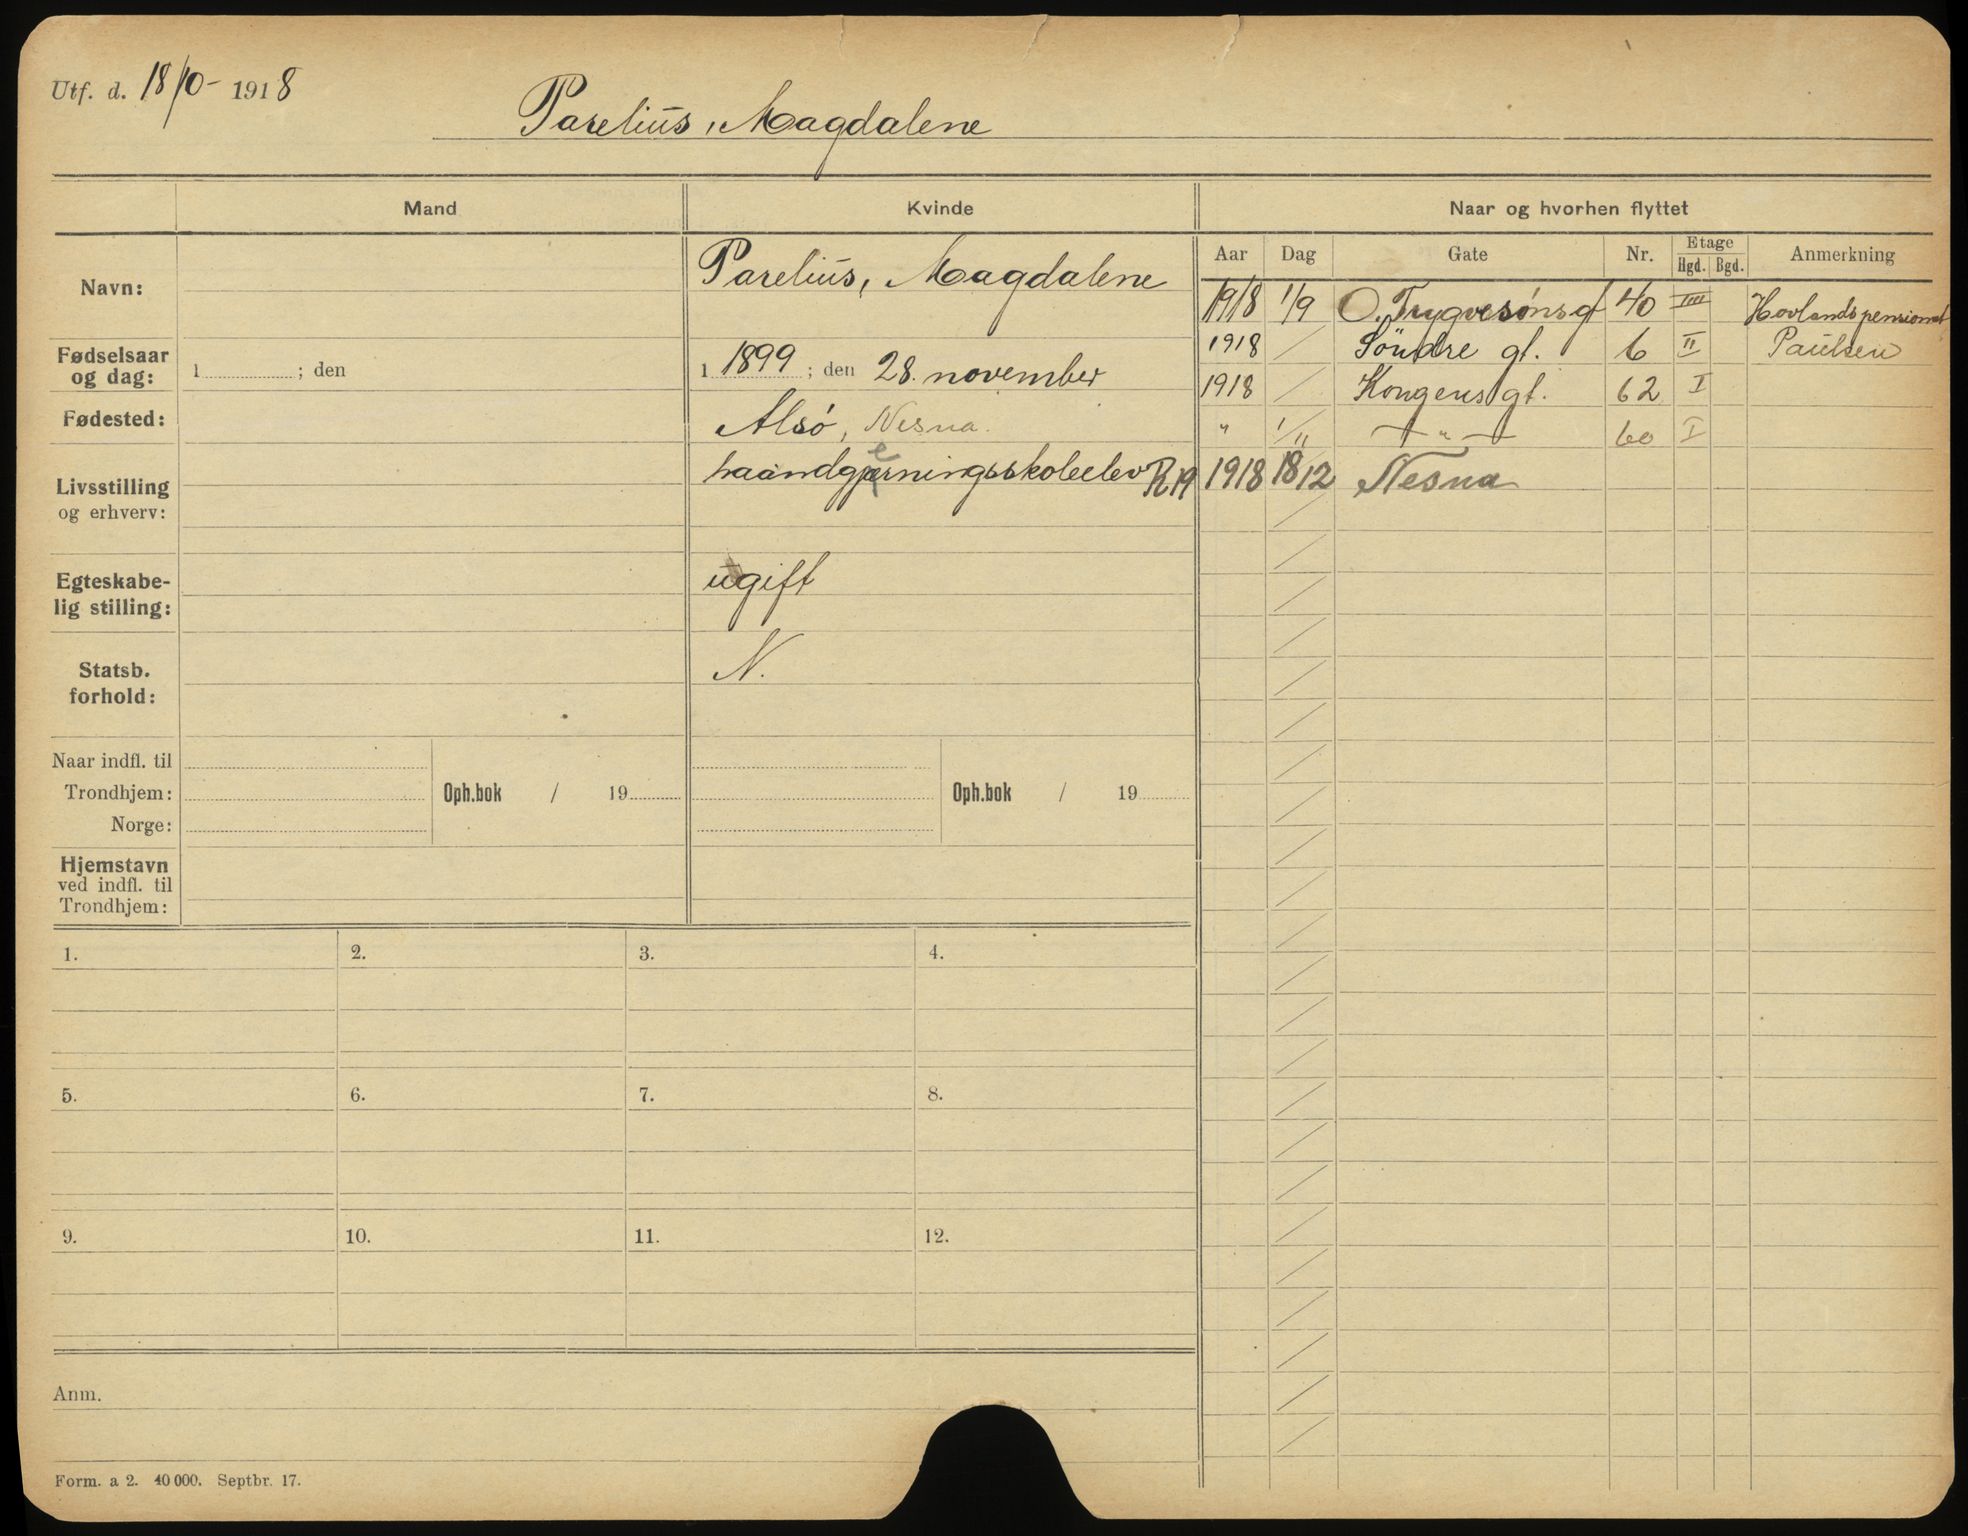 Utf. d. 18/10- 1918
Parelius, Magdalene
Mand
Kvinde
Naar og hvorhen flyttet
Aar Dag Gate Nr. Etage Hgd. Bgd. Anmerkning
Navn:
Parelius, Magdalene
Fødselsaar og dag:
1 ; den
1 1899 ; den 28. november
Fødested:
Alsó, Nesna.
Livsstilling og erhverv:
haandgjerningsskoleelev R 19
Egteskabelig stilling:
ugift
Statsb. forhold:
N.
Naar indfl. til
Trondhjem:
Norge:
Oph.bok / 19
Oph.bok / 19
Hjemstavn
ved indfl. til
Trondhjem:
1918 1/9 O. Trygvesónsgt 40 IIII Hovlandspensionat
1918 / Söndre gt. 6 II Paulsen
1918 / Kongens gt. 62 I
" / " — " — 60 I
1918 18/12 Nesna
1. 2. 3. 4.
5. 6. 7. 8.
9. 10. 11. 12.
Anm.
Form. a 2. 40 000. Septbr. 17.